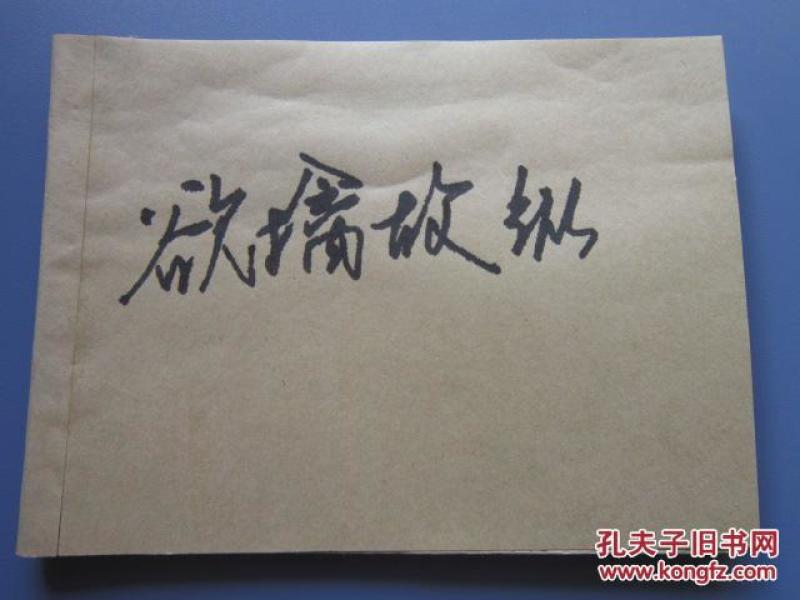 欲擒故纵
孔夫子旧书网
www.kongfz.com